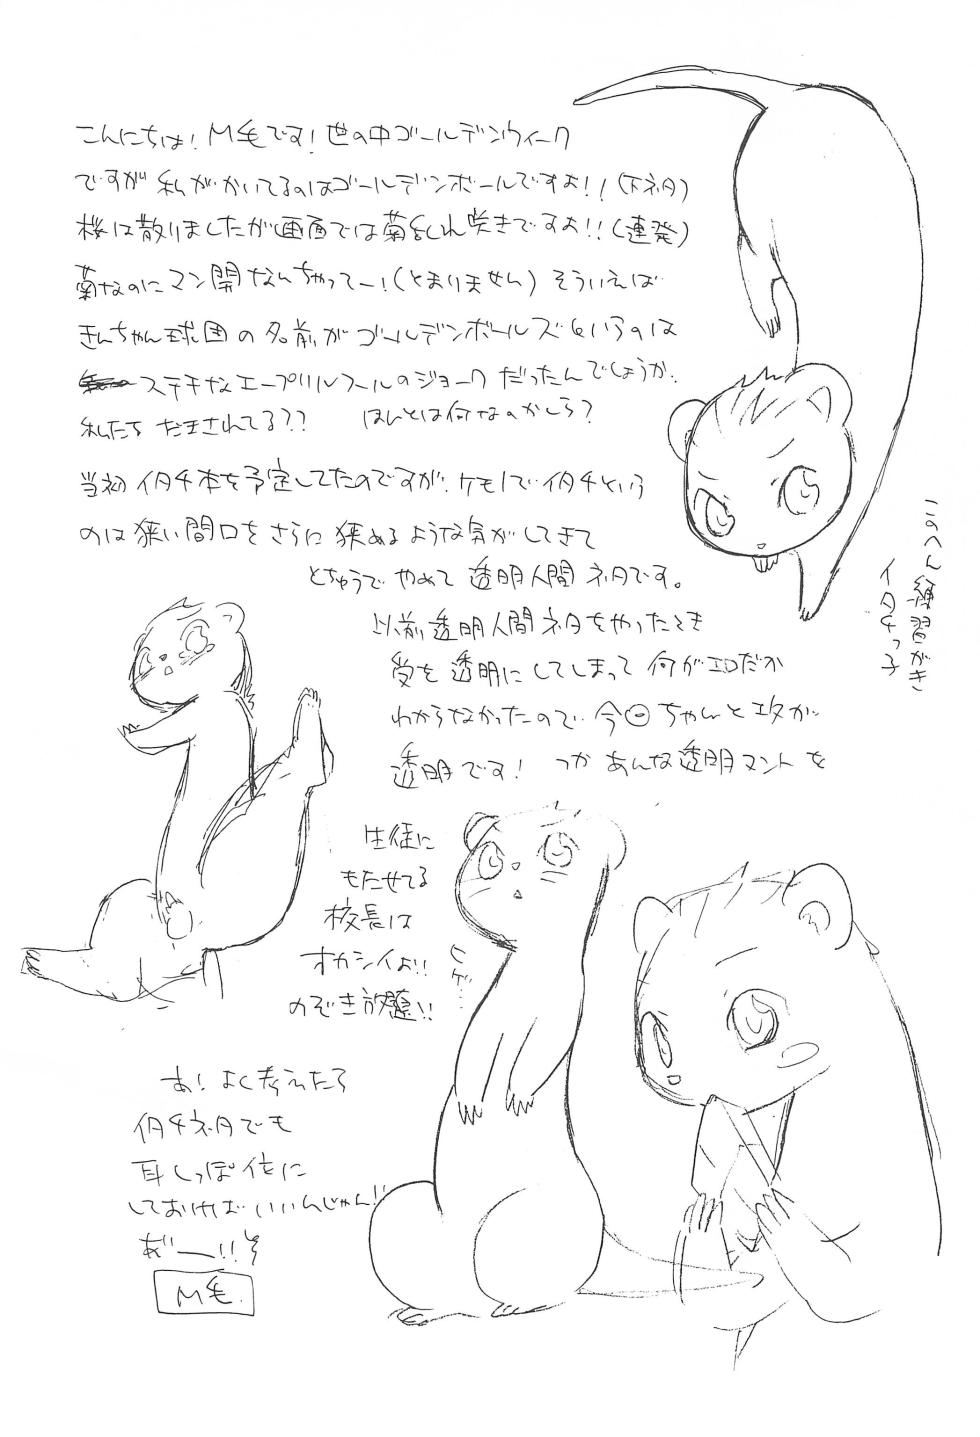 こんにちは！M毛です！世の中ゴールデンウィーク
ですが私がかいてるのはゴールデンボールですよ！！(下ネタ)
桜は散りましたが画面では菊乱れ咲きですよ！！(連発)
菊なのにマン開なんちゃってー！(とまりません) そういえば
きんちゃん球団の名前がゴールデンボールズというのは
ステキなエープリルフールのジョークだったんでしょうか。
私たちだまされてる？？ ほんとは何なのかしら？
当初イタチ本を予定してたのですが、ケモノで、イタチという
のは狭い間口をさらに狭めるような気がしてきて
とちゅうでやめて透明人間ネタです。
以前透明人間ネタをやったとき
受を透明にしてしまって何がエロだか
わからなかったので、今回ちゃんと攻が
透明です！ つかあんな透明マントを
生徒に
もたせてる
校長は
オカシイよ！！
のぞき放題！！
あ！よく考えたら
イタチネタでも
耳しっぽ位に
しておけばいいんじゃん！！
あ゛ー！！
M毛
このへん練習がき
イタチっ子
ヒゲ…